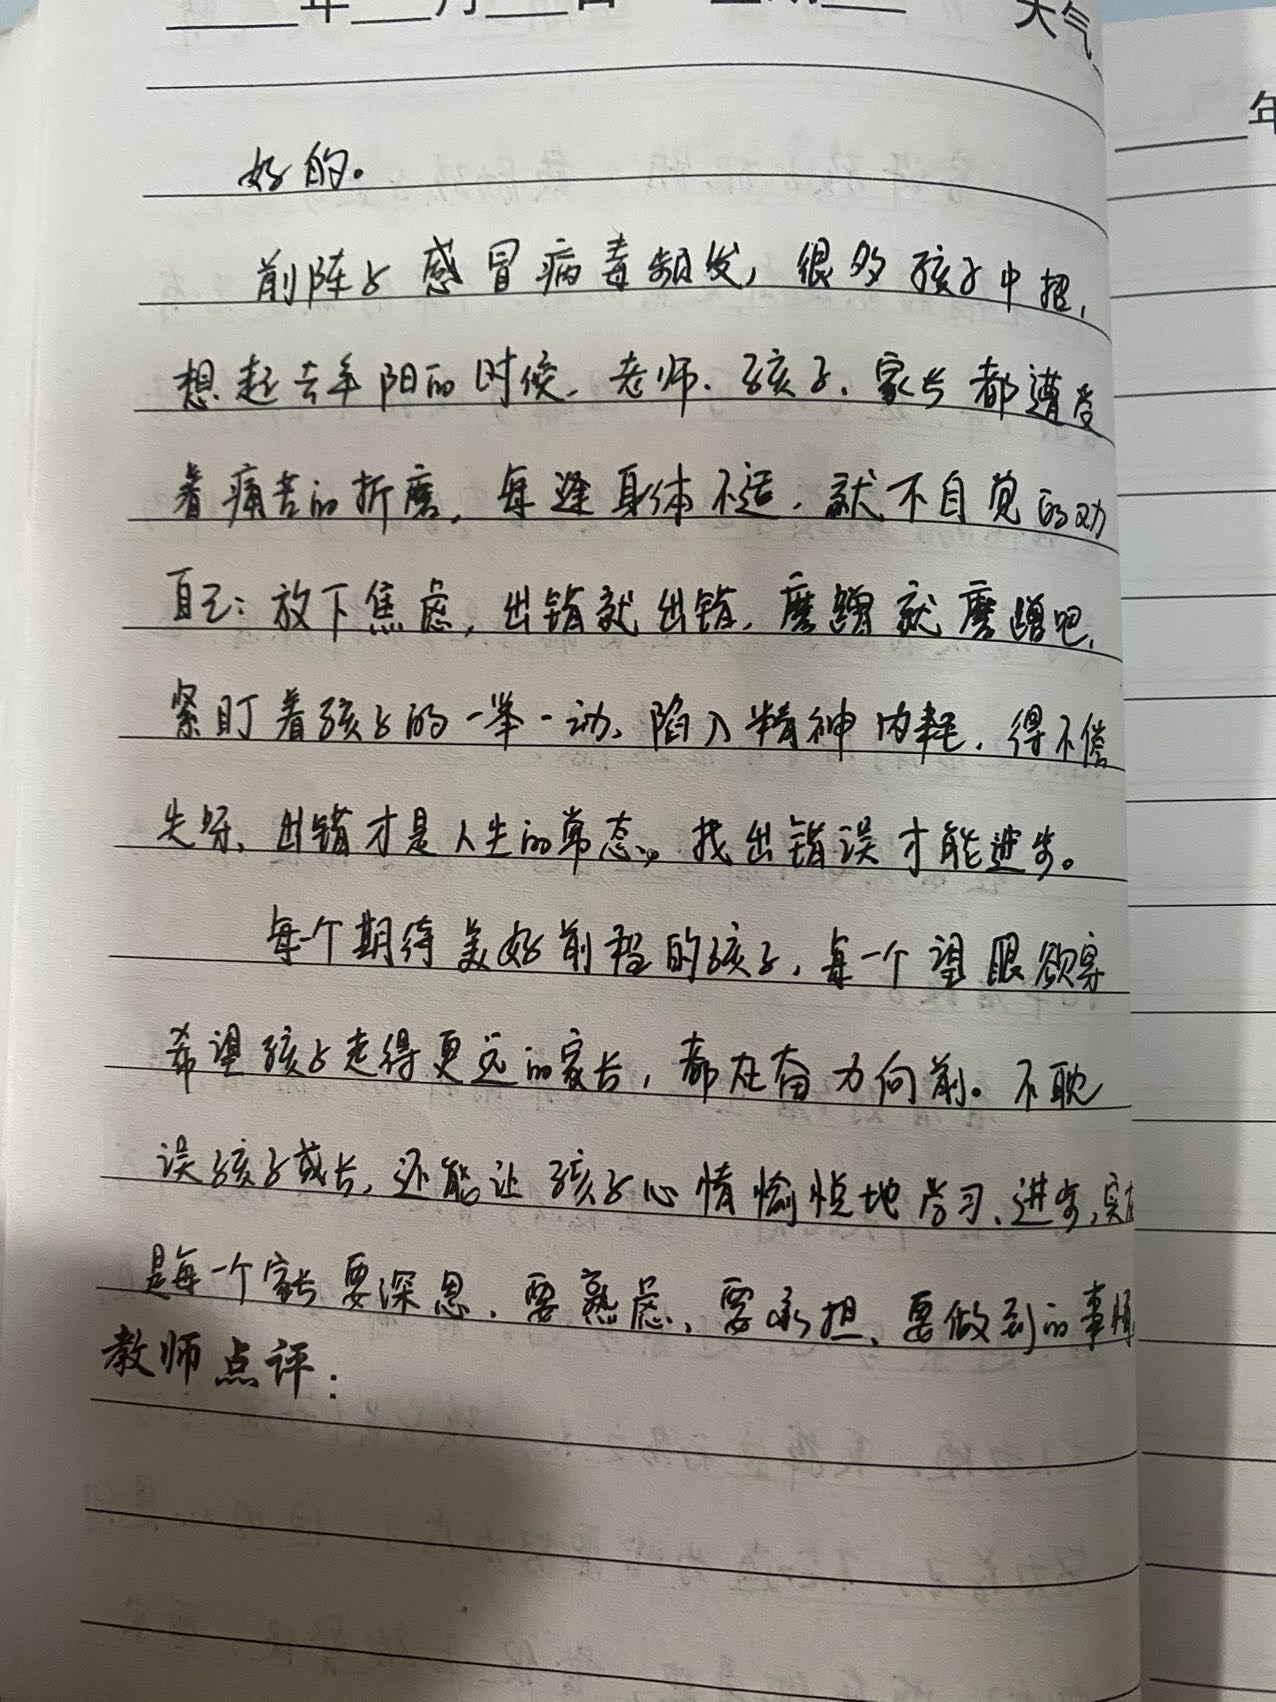 ____年____月____日 星期____ 天气
年
好的。
前阵子感冒病毒频发，很多孩子中招，
想起去年阳的时候，老师、孩子、家长都遭受
着痛苦的折磨，每逢身体不适，就不自觉的劝
自己：放下焦虑，出错就出错，磨蹭就磨蹭吧，
紧盯着孩子的一举一动、陷入精神内耗，得不偿
失呀、出错才是人生的常态，找出错误才能进步。
每个期待美好前程的孩子，每一个望眼欲穿
希望孩子走得更远的家长，都在奋力向前。不耽
误孩子成长，还能让孩子心情愉悦地学习、进步，实在
是每一个家长要深思、要熟虑、要承担、要做到的事情
教师点评：